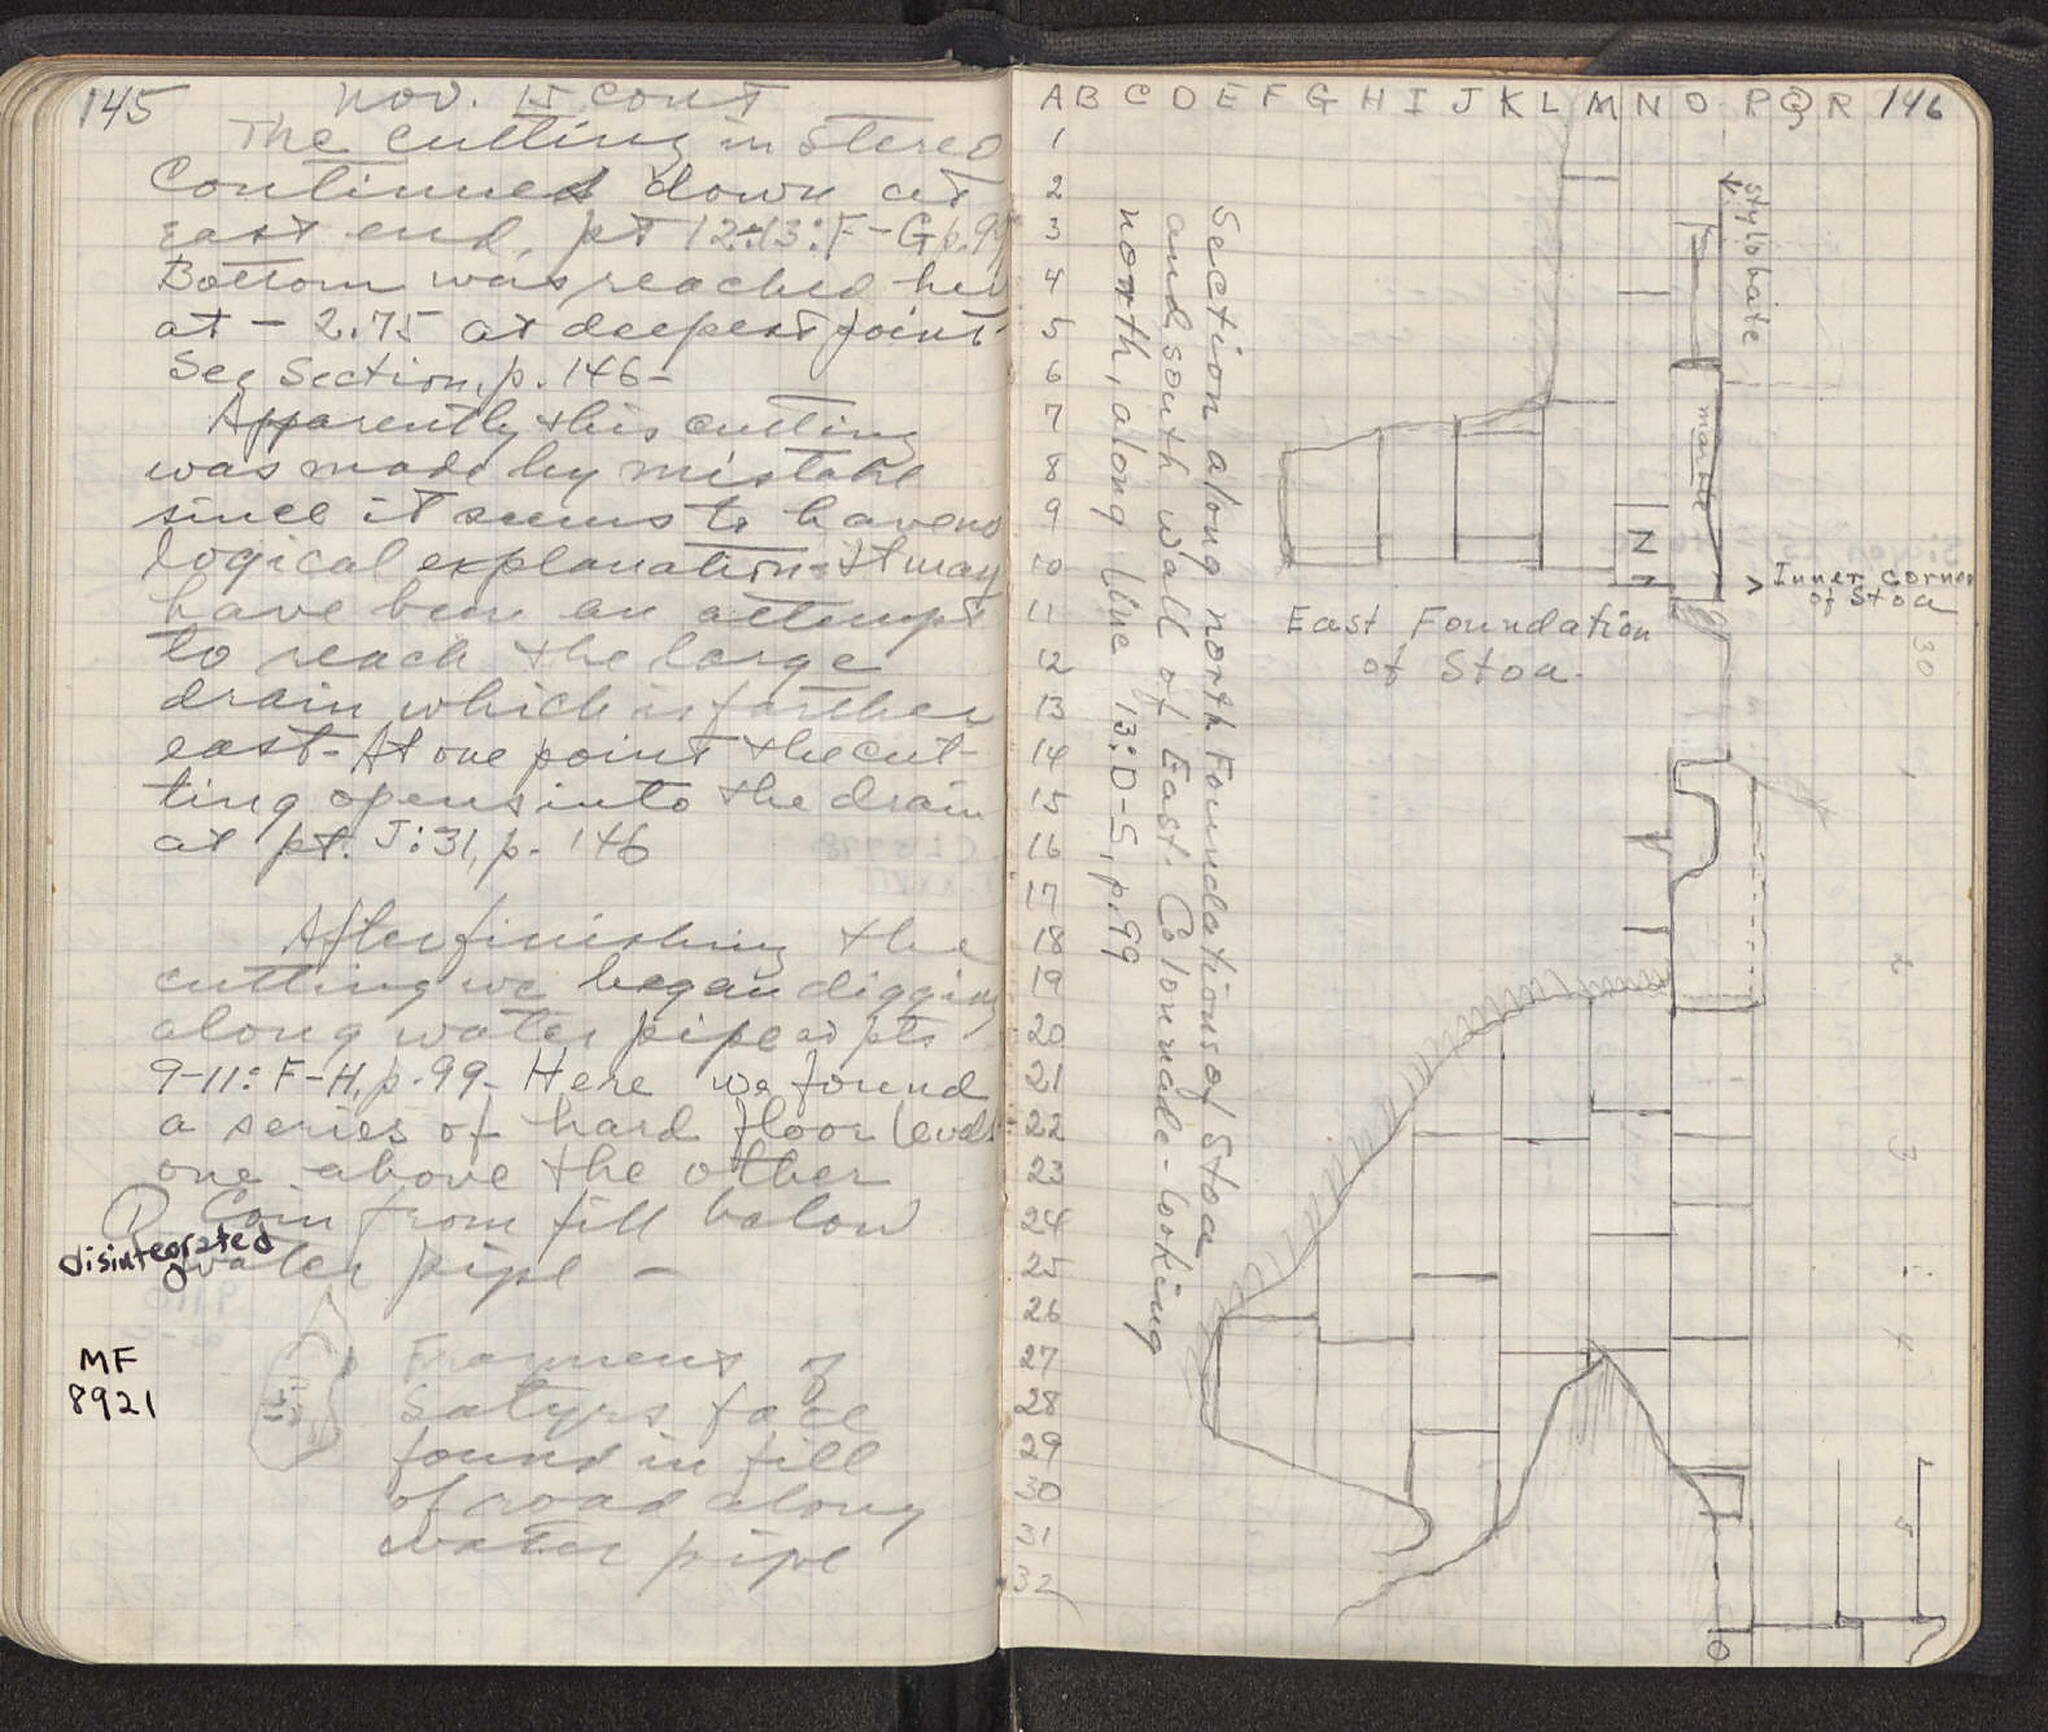 145
Nov. 15 cont
The cutting in stereo
continued down at
east end, pt 12-13:F-G p.99
Bottom was reached here
at - 2.75 at deepest point.
See Section, p. 146-
Apparently this cutting
was made by mistake
since it seems to have no
logical explanation - It may
have been an attempt
to reach the large
drain which is farther
east - At one point the cut-
ting opens into the drain
at pt. J:31, p. 146
After finishing the
cutting we began digging
along water pipe at pts
9-11: F-H, p. 99 - Here we found
a series of hard floor levels
one above the other
① Coin from fill below
disintegrated
water pipe -
MF
8921
Fragment of
Satyrs face
found in fill
of road along
water pipe
A B C D E F G H I J K L M N O P Q R 146
1
2
3
4
5
6
7
8
9
10
11
12
13
14
15
16
17
18
19
20
21
22
23
24
25
26
27
28
29
30
31
32
Section along north Foundations of Stoa
and south wall of East Colonnade - looking
north, along line 13:D-S, p.99
stylobate
marble
N
Inner corner
of Stoa
East Foundation
of Stoa.
30
1
2
3
4
5
0